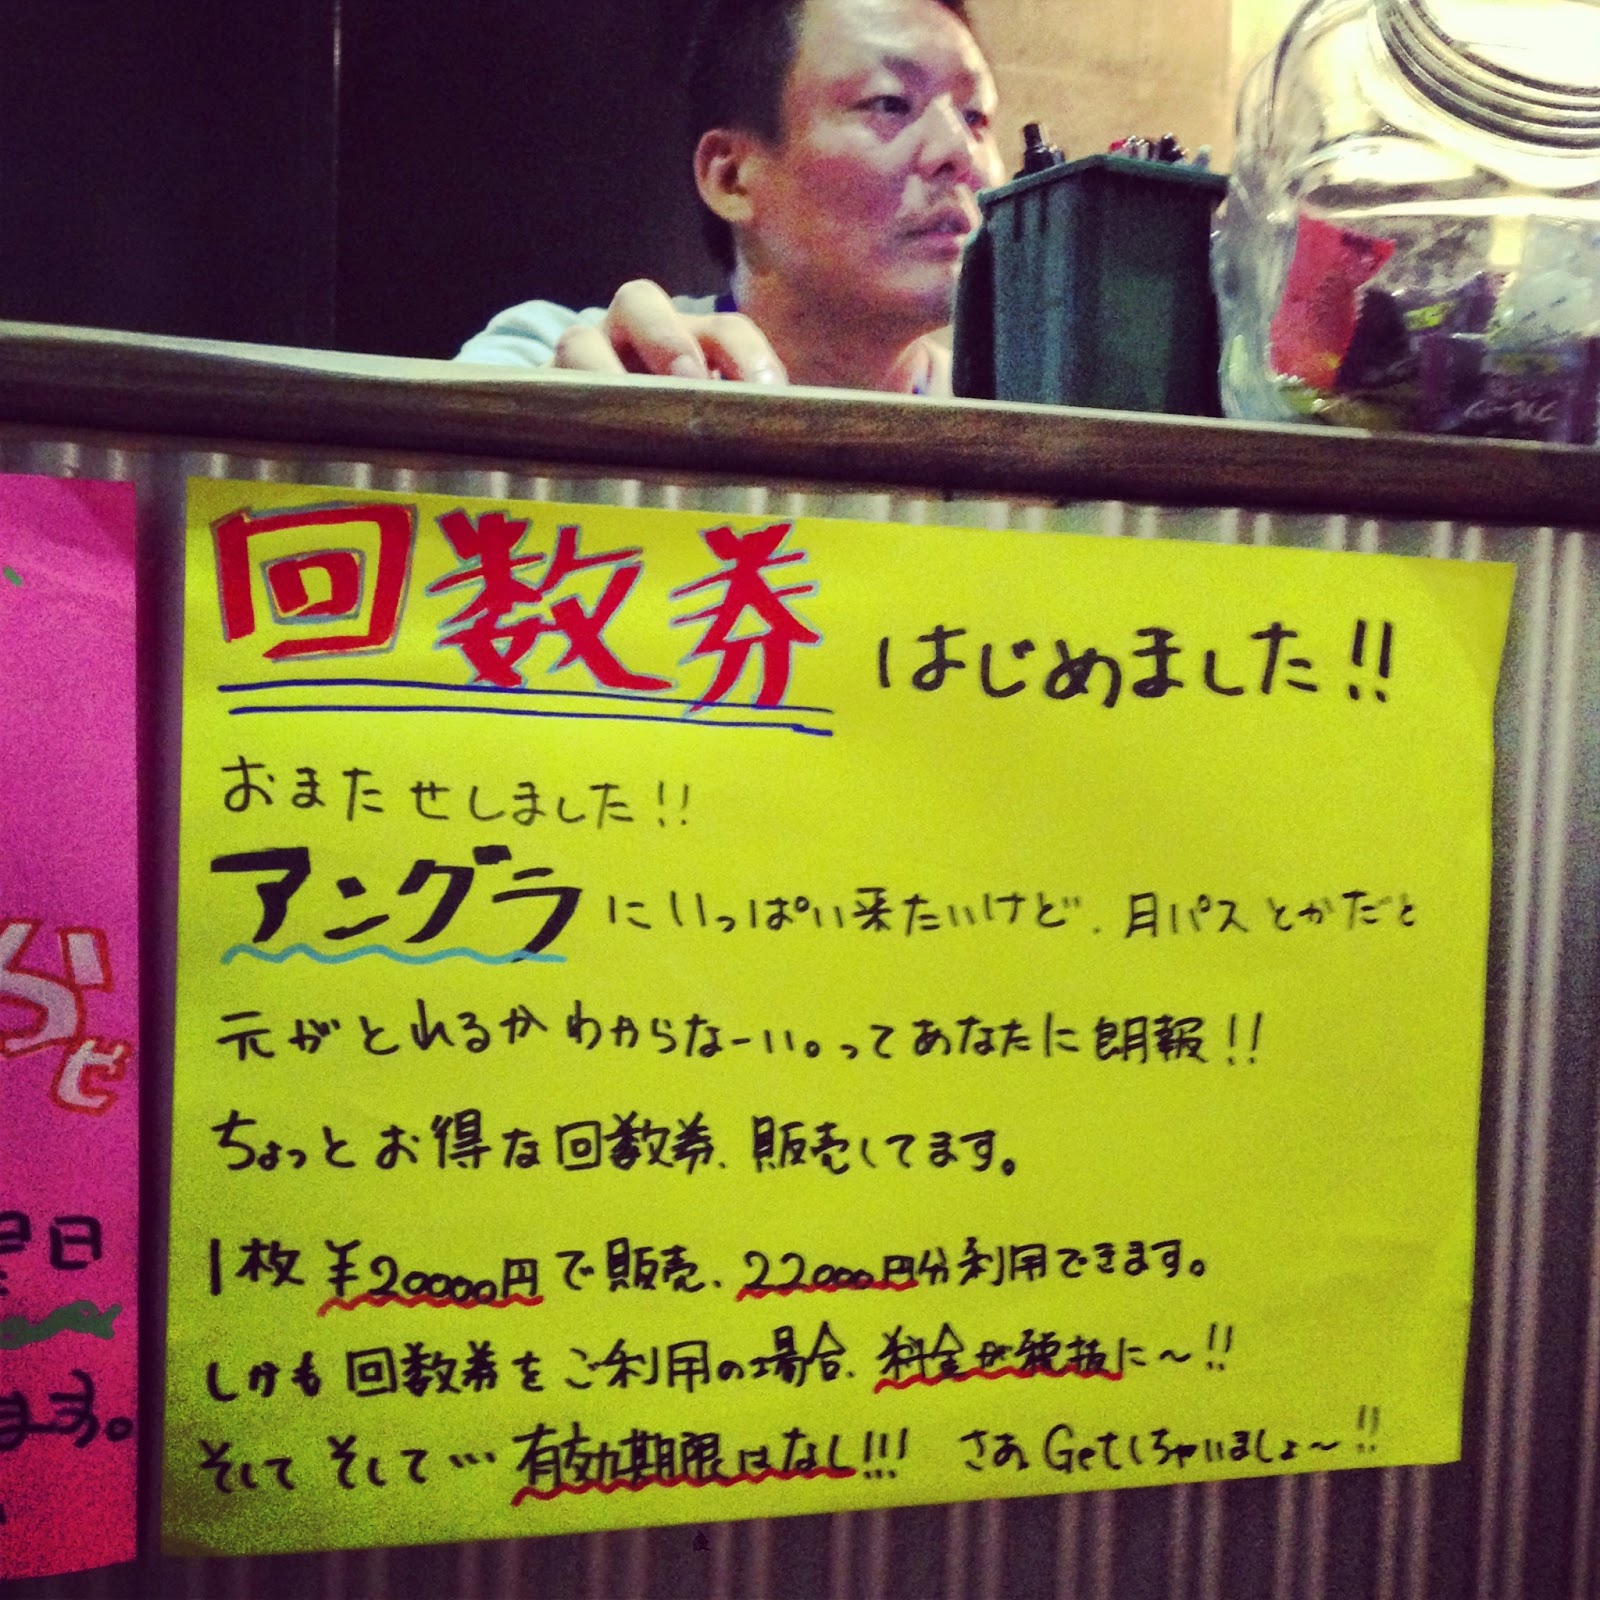 回数券 はじめました!!
おまたせしました!!
アングラにいっぱい来たいけど、月パスとかだと
元がとれるかわからなーい。ってあなたに朗報!!
ちょっとお得な回数券、販売してます。
1枚 ¥20000円で販売、22000円分利用できます。
しかも回数券をご利用の場合、料金が税抜に〜!!
そして そして… 有効期限はなし!!! さあGetしちゃいましょ〜!!
ぜ
日
ます。